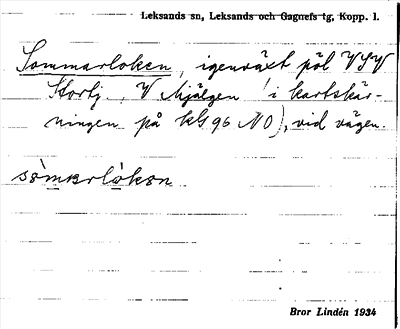 Leksands sn, Leksands och Gagnefs tg, Kopp. l.
Sommarloken, igenväxt pöl VSV
Stortj, V Mjälgen (i kartskär-
ningen på kbl 96 NO), vid vägen.
sòmarlòkən
Bror Lindén 1934